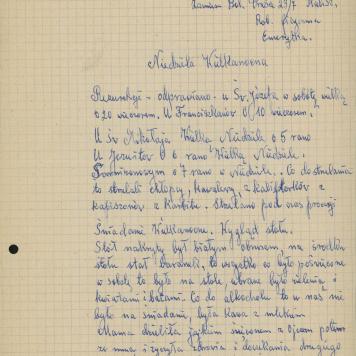 Rob.
Emerytka.
Niedziela Wielkanocna
Rezurekcje - odprawiano - u Św. Józefa w sobotę wielką
o 20 wieczorem. U Franciszkanów o 10 wieczorem.
U Św Mikołaja Wielka Niedziela o 5 rano
U Jezuitów o 6 rano Wielką Niedzielę.
o 7 rano w niedzielę. Co do strzelania
to strzelali chłopcy, Kawalerzy, z
z Karbitu. Strzelano podczas procesji
Śniadanie Wielkanocne. Wygląd stołu.
Stół nakryty był białym obrusem, na środku
stołu stał baranek, to wszystko co było poświęcone
w sobotę to było na stole, ubrane było zielenią i
kwiatami i baziami. Co do alkoholu to u nas nie
było na śniadaniu, była kawa z mlekiem
Mama dzieliła jajkiem święconem z Ojcem potem
ze mną i życzyła zdrowia i doczekania drugiego